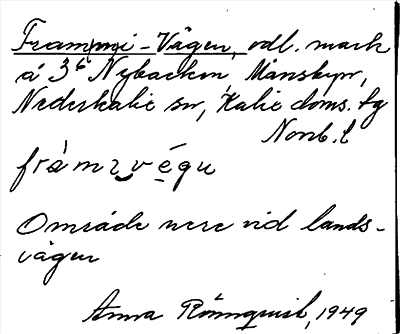 Frammi-Vägen, odl. mark
å 3⁶ Nybacken Månsbyn,
Nederkalix sn, Kalix doms. tg
Norrb. l
frámzvégu
Område nere vid lands-
vägen
Anna Rönnquist, 1949